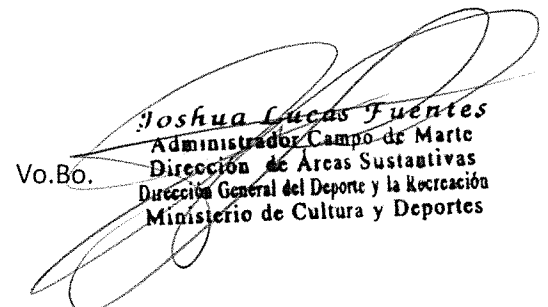 Joshua Lucas Fuentes
Administrador Campo de Marte
Vo.Bo. Dirección de Áreas Sustantivas
Dirección General del Deporte y la Recreación
Ministerio de Cultura y Deportes